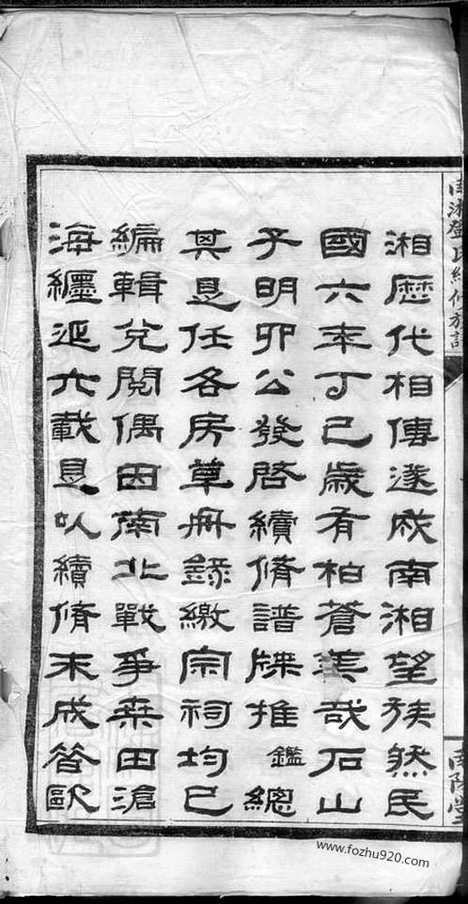 南湘鄧氏續修族譜
南陽堂
湘歷代相傳遂成南湘望族然民
國六年丁巳歲有柏蒼美哉石山
子明卯公發啓續脩譜牒推鑑總
其是任各房草冊錄繳宗祠均已
編輯兌閱偶因南北戰爭桑田滄
海纏延六載是以續脩未成咎歐
www.fozhu920.com